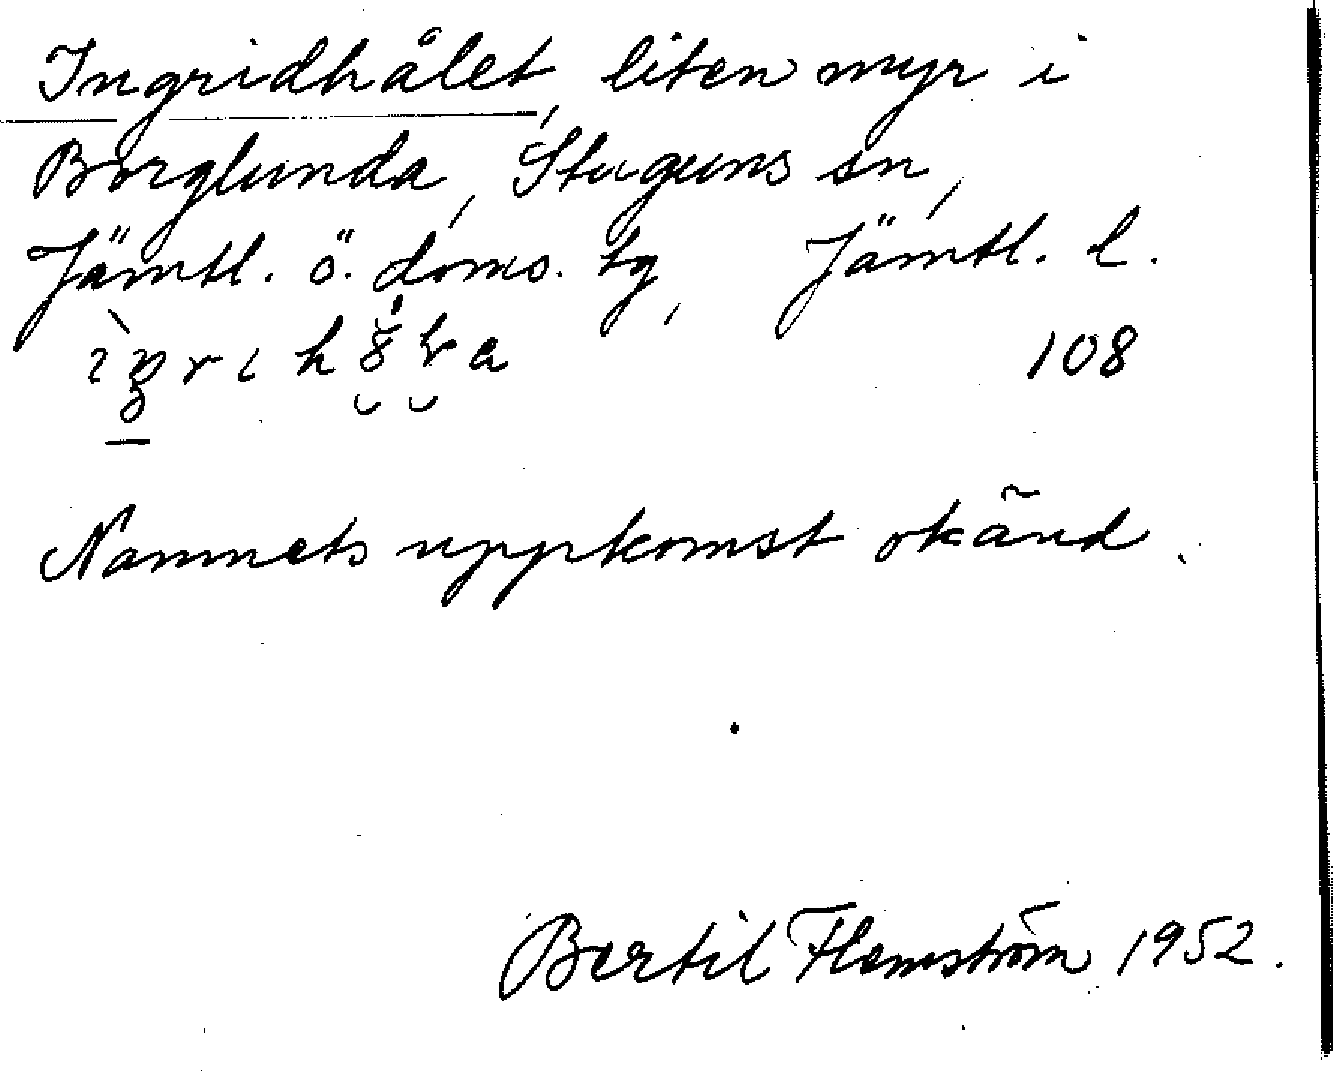 Ingridhålet, liten myr i
Borglunda, Staguns sn,
Jämtl. ö. doms. tg, Jämtl. l.
108
Namnets uppkomst okänd.
Bertil Flemström 1952.